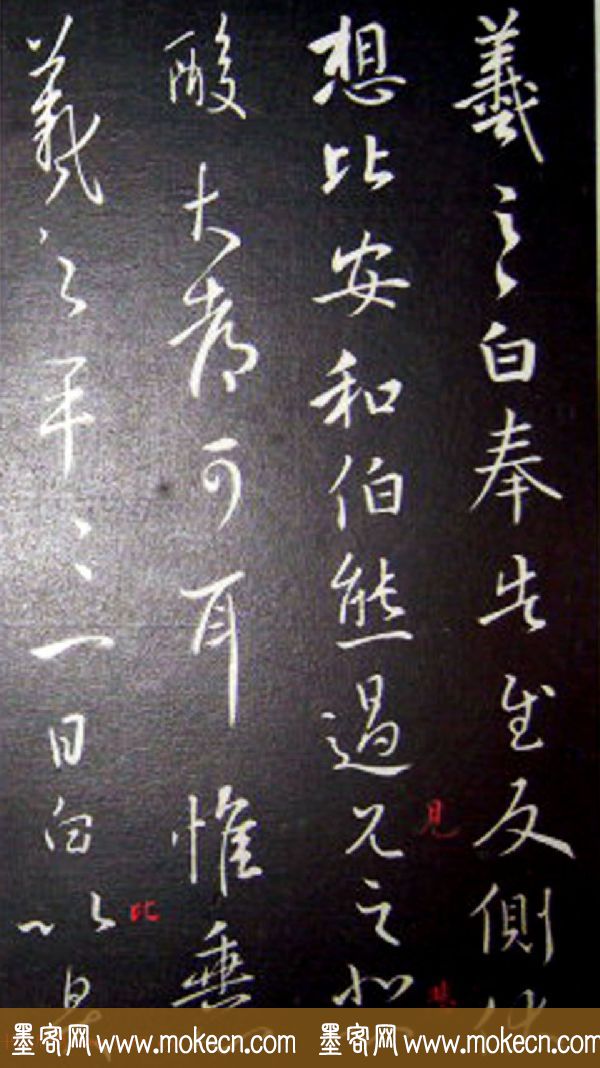 羲之白奉告慰反側
想比安和伯熊過見之悲
酸大都可耳惟垂
羲之平平一日白比
見
比
悲
墨客网 www.mokecn.com 墨客网 www.mokecn.com